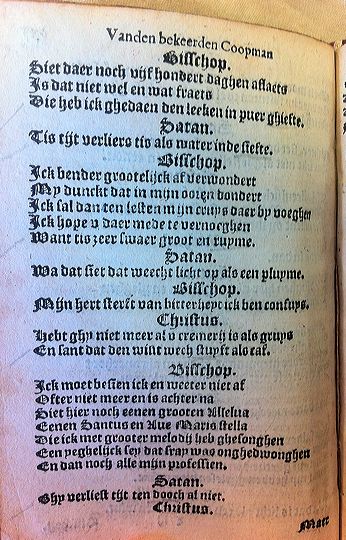 Vanden bekeerden Coopman
Bisschop.
Siet daer noch vijf hondert daghen aflaets
Is dat niet wel en wat fraets
Die heb ick ghedaen den leeken in puer ghiefte.
Satan.
Tis tijt verliers tis als water inde siefte.
Bisschop.
Ick bender grootelijck af verwondert
My dunckt dat in mijn ooren dondert
Ick sal dan ten lesten mijn cruys daer by voeghen
Ick hope v daer mede te vernoeghen
Want tis zeer swaer groot en ruyme.
Satan.
Wa dat siet dat weecht licht op als een pluyme.
Bisschop.
Mijn hert sterft van bitterheyt ick ben confuys.
Christus.
Hebt ghy niet meer al v cremerij is als gruys
En sant dat den wint wech stuyft als caf.
Bisschop.
Ick moet bessen ick en weeter niet af
Ofter niet meer en is achter na
Siet hier noch eenen grooten Alleluia
Eenen Sanctus en Aue Maris stella
Die ick met grooter melodij heb ghesonghen
Een yeghelijck sey dat fray was onghedwonghen
En dan noch alle mijn professien.
Satan.
Ghy verliest tijt ten dooch al niet.
Christus.
Maer